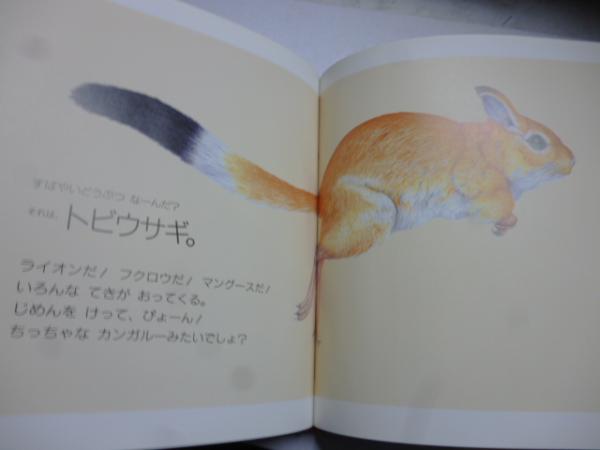 すばやいどうぶつ なーんだ?
それは、トビウサギ。
ライオンだ! フクロウだ! マングースだ!
いろんな てきが おってくる。
じめんを けって、ぴょーん!
ちっちゃな カンガルーみたいでしょ?